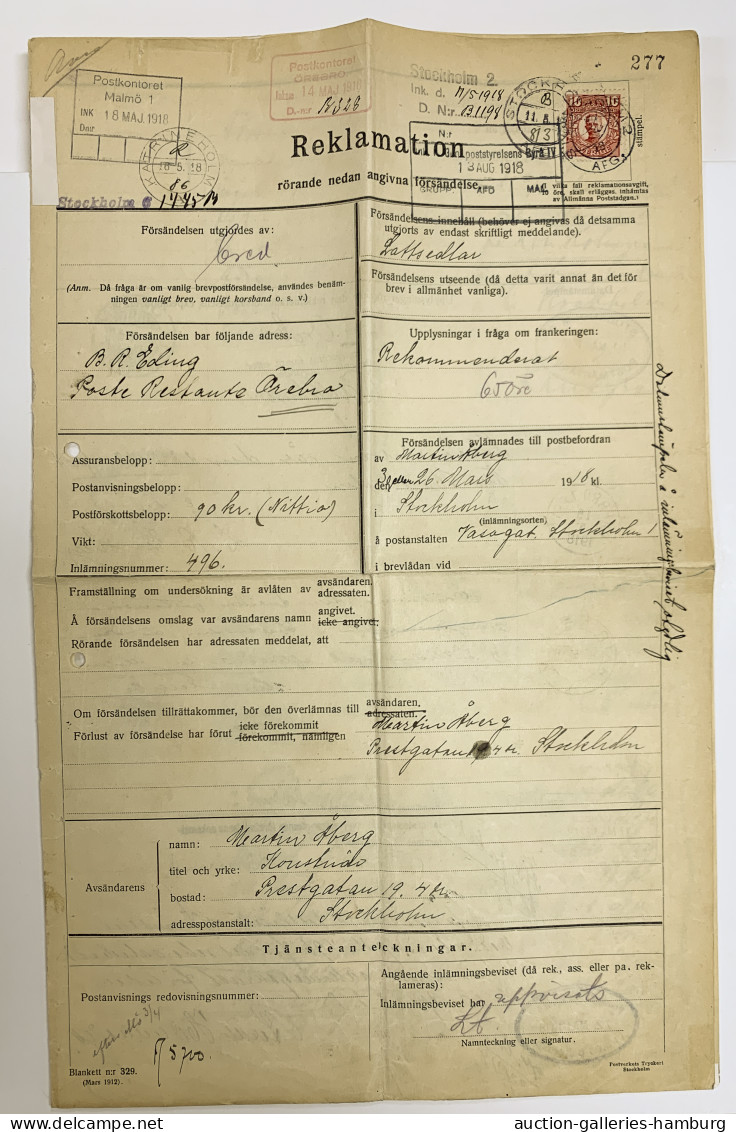 277
Postkontoret
Malmö 1
INK 18 MAJ 1918
D:nr
Postkontoret
ÖREBRO
14 MAJ 1918
D.-n:r B328
Stockholm 2.
Ink. d. 11/5-1918
D. N:r B1194
KATRINEHOLM
16.5.18
86
1445 B
Stockholm 6
STOCKHOLM
11.5.
AFG.
N:r
Gen. poststyrelsens Byrå IV
13 AUG 1918
GRUPP AFD MAG.
stämpel.
Reklamation
rörande nedan angivna försändelse.
vilka full reklamationsavgift,
10 öre, skall erläggas, inhämtas
av Allmänna Poststadgan.)
Försändelsen utgjordes av:
bred
(Anm. Då fråga är om vanlig brevpostförsändelse, användes benäm-
ningen vanligt brev, vanligt korsband o. s. v.)
Försändelsens innehåll (behöver ej angivas då detsamma
utgjorts av endast skriftligt meddelande).
Lottsedlar
Försändelsens utseende (då detta varit annat än det för
brev i allmänhet vanliga).
Försändelsen bar följande adress:
B. R. Eding
Poste Restante Örebro
Upplysningar i fråga om frankeringen:
Rekommenderat
65 öre
Assuransbelopp:
Postanvisningsbelopp:
Postförskottsbelopp: 90 kr. (Nittio)
Vikt:
Inlämningsnummer: 496.
Försändelsen avlämnades till postbefordran
av Martin Åberg
den 26. Mars 1918 kl.
i Stockholm
(inlämningsorten)
å postanstalten Vasagat. Stockholm 1
i brevlådan vid
Datumstämpeln å inlämningsbeviset otydlig
Framställning om undersökning är avlåten av avsändaren.
adressaten.
Å försändelsens omslag var avsändarens namn angivet.
icke angivet.
Rörande försändelsen har adressaten meddelat, att
Om försändelsen tillrättakommer, bör den överlämnas till avsändaren.
adressaten.
Förlust av försändelse har förut icke förekommit
förekommit, nämligen
Martin Åberg
Prestgatan 19. 4 tr. Stockholm
Avsändarens
namn: Martin Åberg
titel och yrke:
bostad: Prestgatan 19. 4 tr.
adresspostanstalt: Stockholm
Tjänsteanteckningar.
Postanvisnings redovisningsnummer:
Angående inlämningsbeviset (då rek., ass. eller pa. rek-
lameras):
Inlämningsbeviset har uppvisats
Namnteckning eller signatur.
Blankett n:r 329.
(Mars 1912).
Postverkets Tryckeri
Stockholm
auction-galleries-hamburg.com